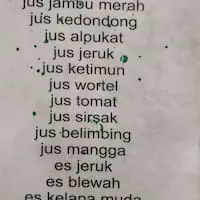 jus jambu merah
jus kedondong
jus alpukat
jus jeruk
jus ketimun
jus wortel
jus tomat
jus sirsak
jus belimbing
jus mangga
es jeruk
es blewah
es kelapa muda